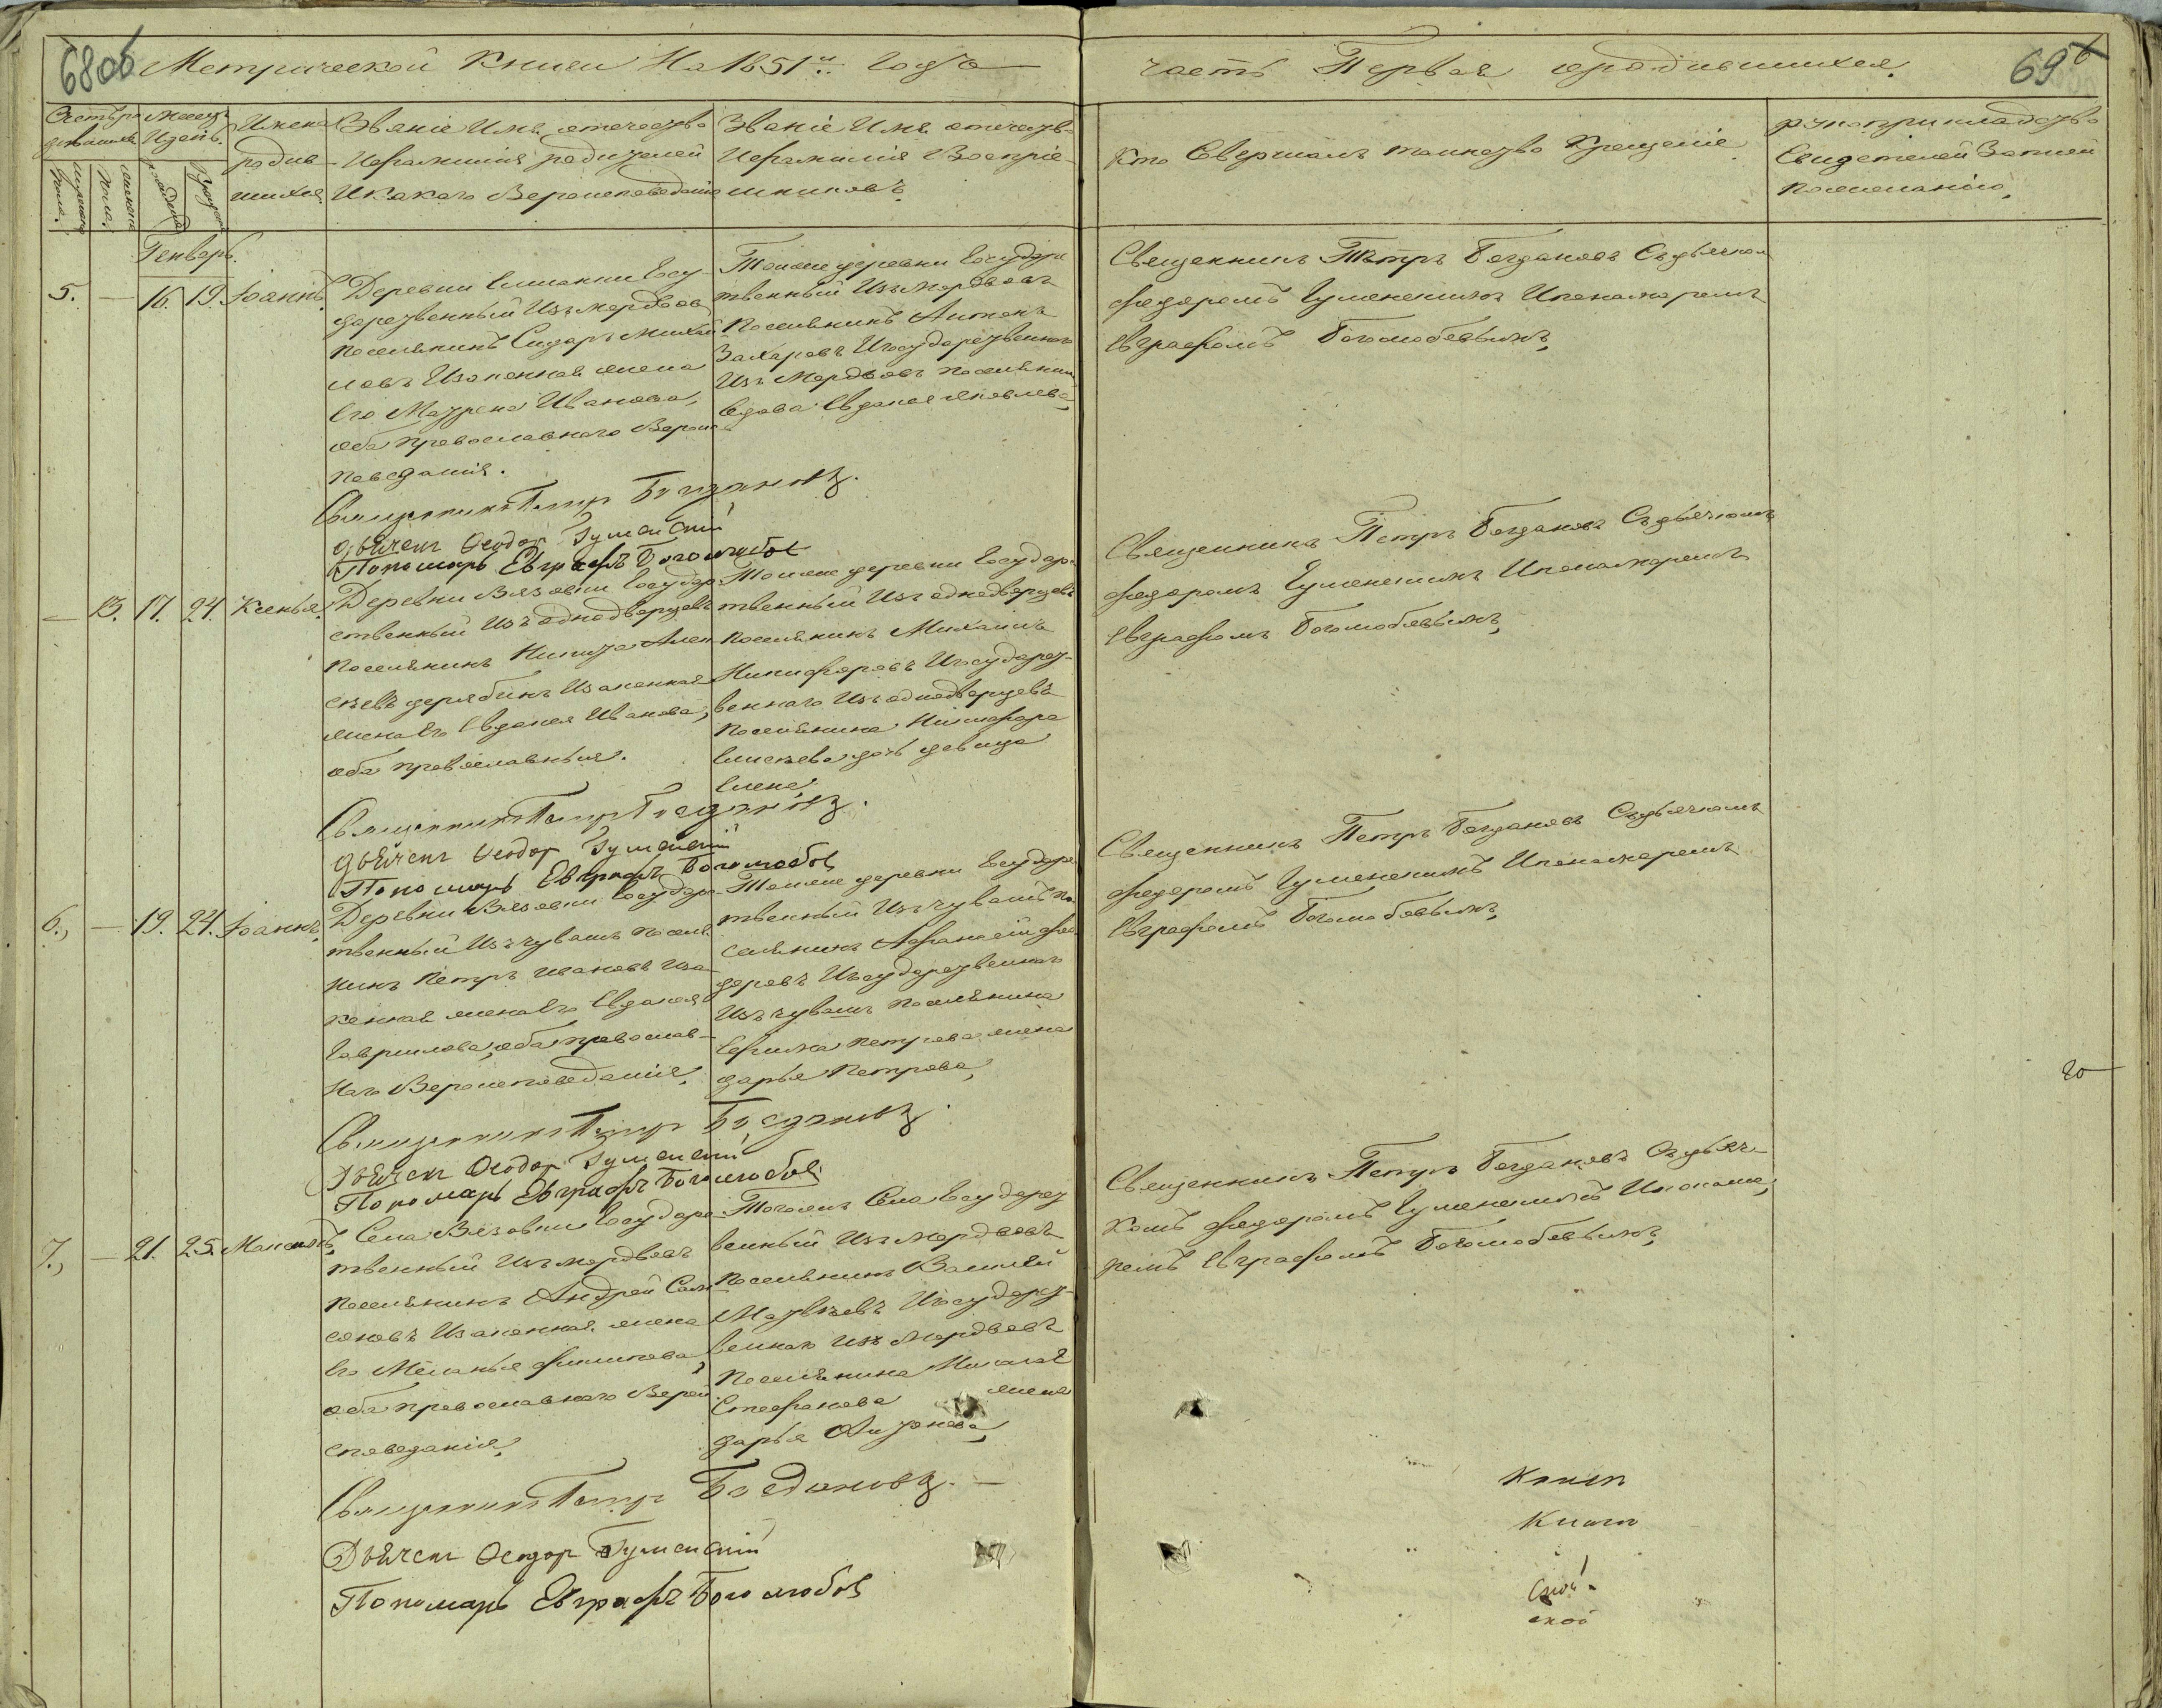 68об
Метрической Книги На 1851й. Годъ
часть Первая ородившихся.
69
Счетъ ро Месецъ
дившихся Идень.
Имена
родив
шихся.
Званіе Имя, отечество
Ифамилия родителей
Икакого Вероисповеданія
Званіе Имя отечеств
Ифамилія Воспріе
мниковъ.
Кто Совершалъ таинство Крещеніе
рукоприкладство
Свидетелей Записи
Пожеланію,
мужеска пола.
женска пола.
рожденія
Крещенія
Генварь.
5. — 16. 19. Іоаннъ.
Деревни Госу-
дарственный Изъ мордвовъ
Поселянинъ Сидоръ Михай
ловъ Изаконная жена
Его Матрена Иванова,
оба православнаго Вероис
поведания.
Тойже деревни Государс
твенный Изъ Мордвовъ
Поселянинъ Антонъ
Захаровъ Игосударственнаго
Изъ Мордвовъ поселянина
вдова Евдокея Яковлева,
Священникъ Петръ Богдановъ Съдьячком
Федоромъ Гуменскимъ Ипономаремъ
Евграфомъ Боголюбовымъ,
Священникъ Петръ Богдановъ.
Дьячекъ Феодор Гуменскій
Пономарь Евграфъ Боголюбов
— 13. 17. 24. Ксенья.
Деревни Вязовки Государ
ственный Изъ однодворцевъ
Поселянинъ Никита Алек
сеевъ дерябинъ Изаконная
жена Его Евдокея Иванова,
оба православныя.
Тойже деревни Государс
твенный Изъ однодворцевъ
Поселянинъ Михаилъ
Никифоровъ Игосударст-
веннаго Изъ однодворцевъ
Поселянина Никифора
дочь девица
Елена,
Священникъ Петръ Богдановъ Съдьячкомъ
Федоромъ Гуменскимъ Ипономаремъ
Евграфомъ Боголюбовымъ,
Священникъ Петръ Богдановъ.
Дьячекъ Феодор Гуменскій
Пономарь Евграфъ Боголюбов
6., — 19. 24. Іоаннъ,
Деревни Вязовки Государс
твенный Изъ чувашъ поселя
нинъ Петръ Ивановъ Иза
конная жена Его Евдокея
Гаврилова, оба православ-
наго Вероисповеданія,
Тойже деревни Государс
твенный Изъ чувашъ по
селянинъ Афанасій Фе
доровъ Игосударственнаго
Изъ чувашъ поселянина
Ефима Петрова жена
дарья Петрова,
Священникъ Петръ Богдановъ Съдьячкомъ
Федоромъ Гуменскимъ Ипономаремъ
Евграфомъ Боголюбовымъ,
Священникъ Петръ Богдановъ.
Дьячекъ Феодор Гуменскій
Пономарь Евграфъ Боголюбов
7., — 21. 25.
Села Вязовки Государс
твенный Изъ мордвовъ
Поселянинъ Андрей Сам
соновъ Изаконная жена
Его Меланья Филипова,
оба православнаго Верои
споведания,
Тогожъ Села Государст
венный Изъ Мордвовъ
Поселянинъ Василей
Матвеевъ Игосударст-
веннаго Изъ Мордвовъ
Поселянина
Стефанова жена
дарья Антонова,
Священникъ Петръ Богдановъ Съдьяч-
комъ Федоромъ Гуменскимъ Ипонома
ремъ Евграфомъ Боголюбовымъ,
Священникъ Петръ Богдановъ. —
Дьячекъ Феодор Гуменскій
Пономарь Евграфъ Боголюбов